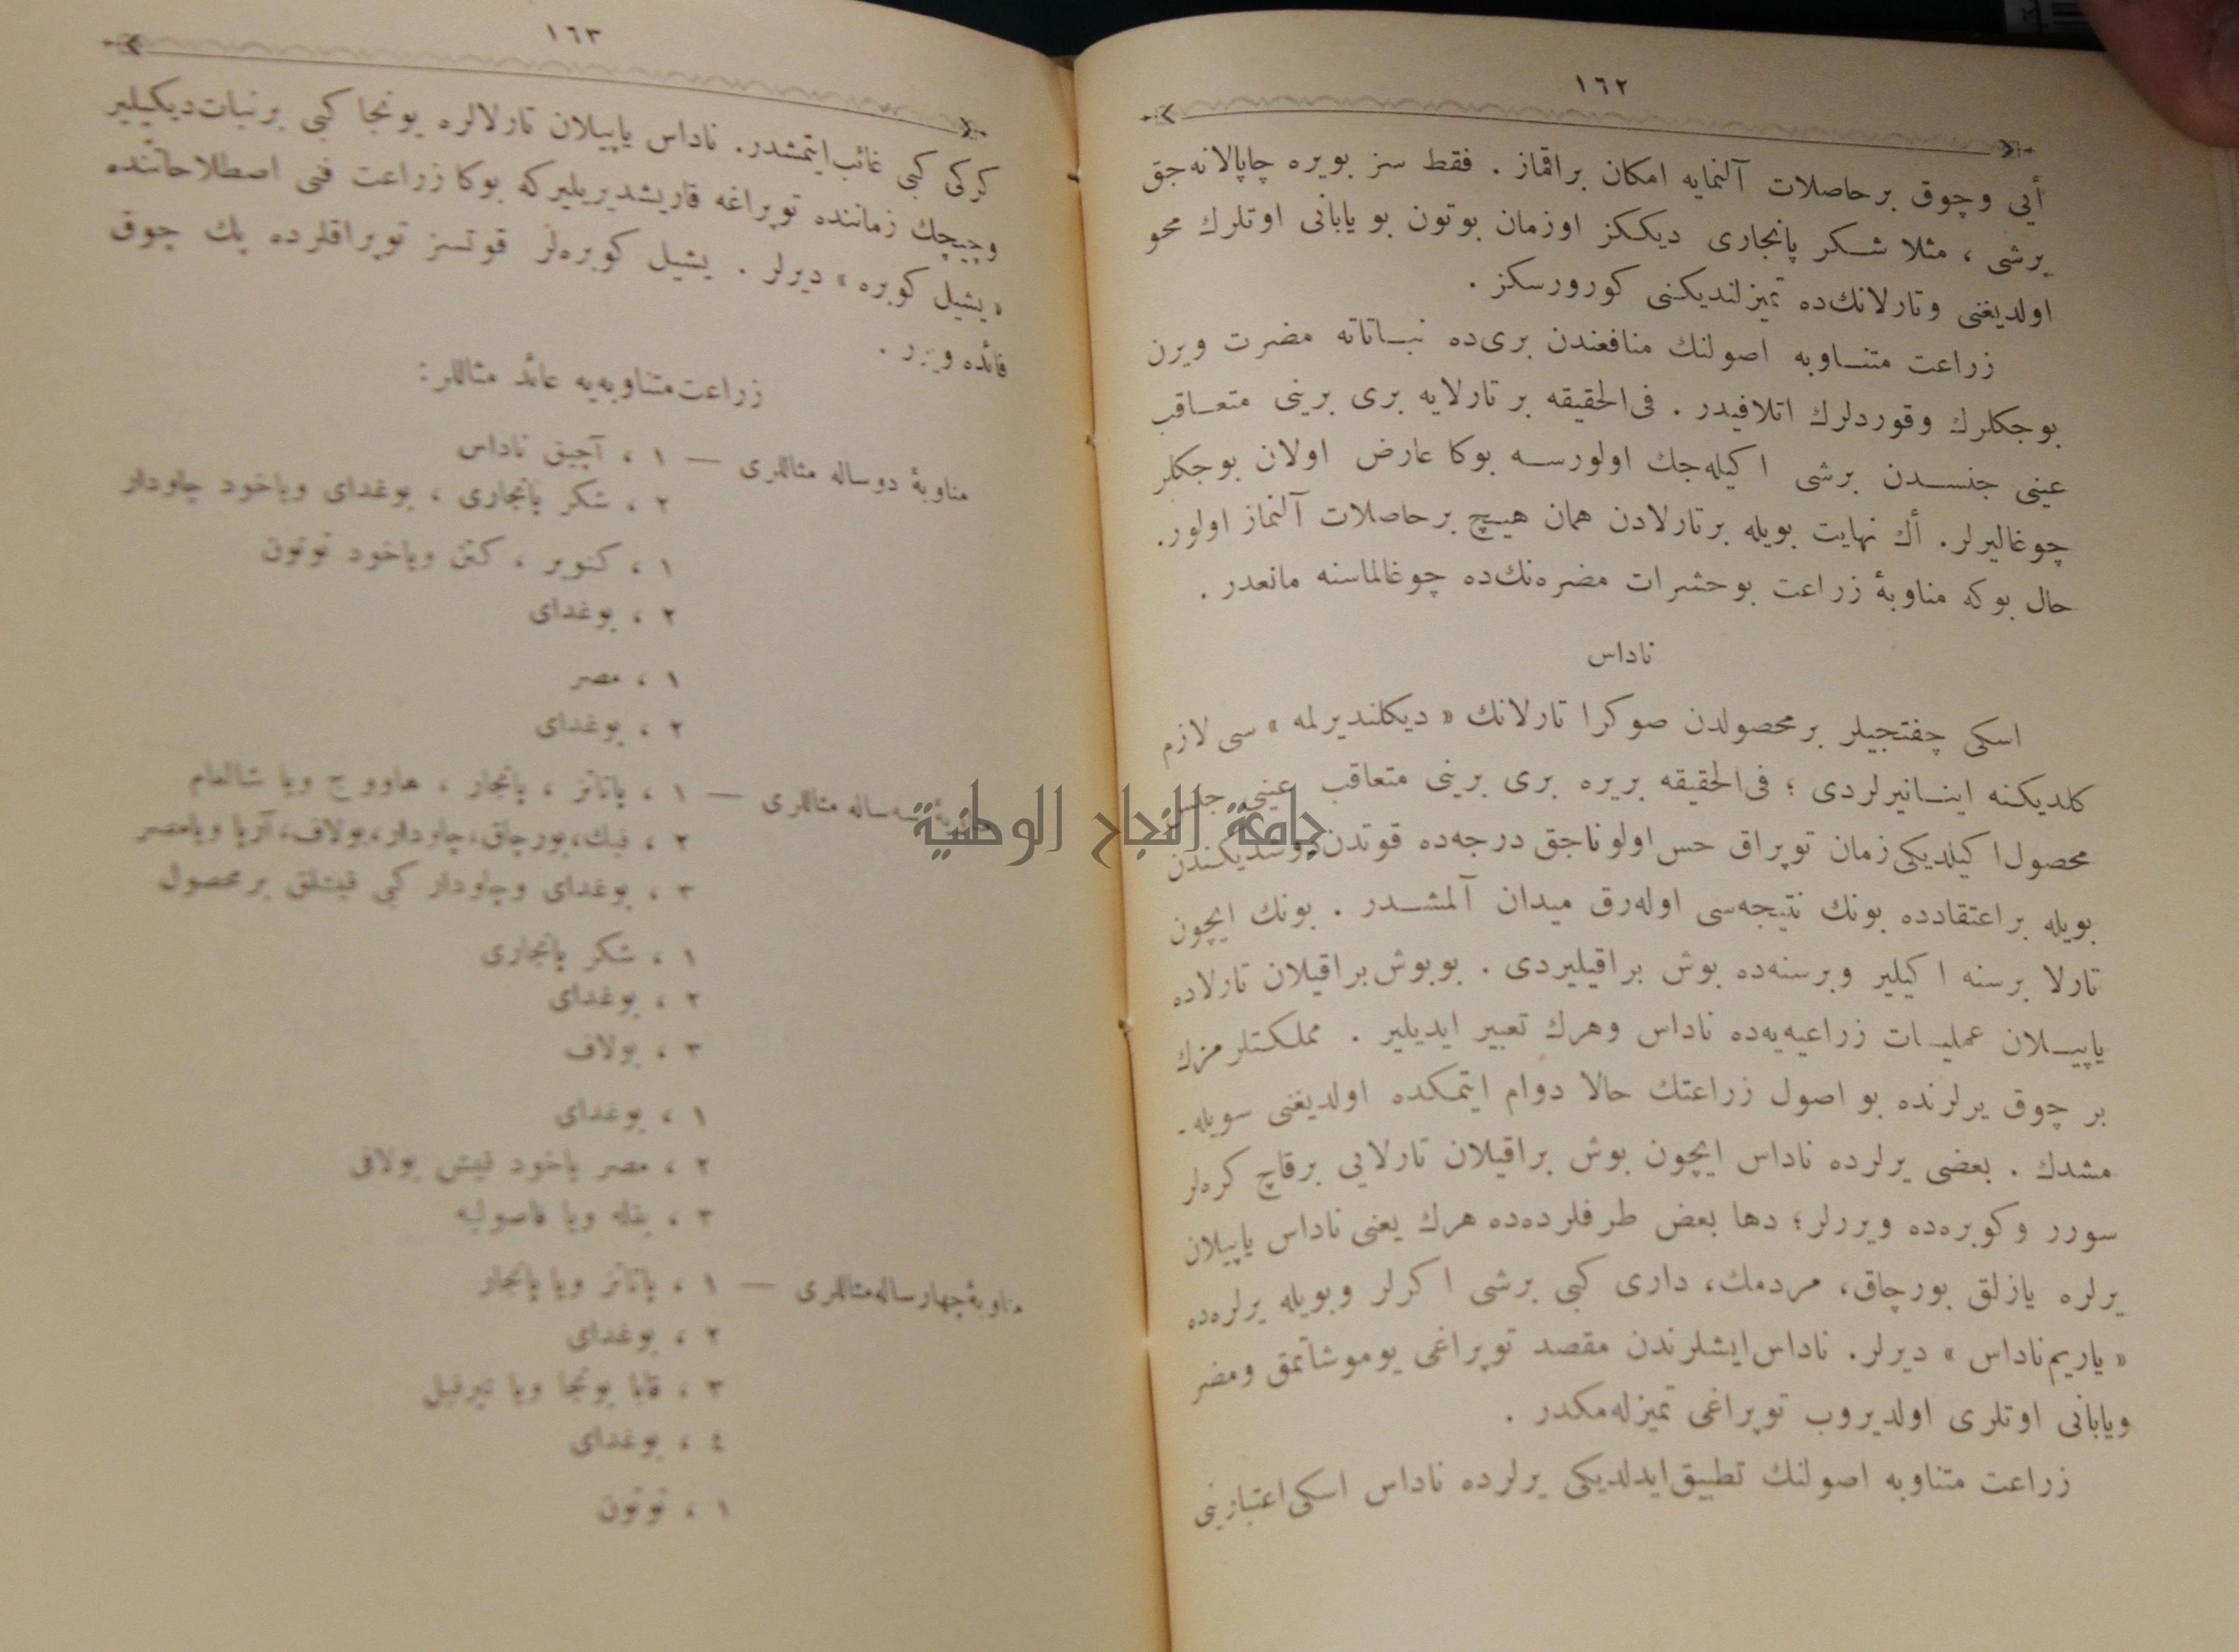 ١٦٢
أیی وچوق برحاصلات آلنمایه امكان براقماز . فقط سز بویره چاپالانه جق
یرشی ، مثلا شكر پانجاری دیككز اوزمان بوتون بو یابانی اوتلرك محو
اولدیغنی وتارلانك‌ده تمیزلندیكنی كورورسكز .
زراعت متناوبه اصولنك منافعندن بری‌ده نباتاته مضرت ویرن
بوجكلرك وقوردلرك اتلافیدر . فی‌الحقیقه بر تارلایه بری برینی متعاقب
عینی جنسدن برشی اكیله‌جك اولورسه بوكا عارض اولان بوجكلر
چوغالیرلر. أك نهایت بویله برتارلادن همان هیچ برحاصلات آلنماز اولور.
حال بوكه مناوبهٔ زراعت بوحشرات مضره‌نك‌ده چوغالماسنه مانعدر .
ناداس
اسكی چفتجیلر برمحصولدن صوكرا تارلانك « دیكلندیرلمه » سی لازم
كلدیكنه اینانیرلردی ؛ فی‌الحقیقه بریره بری برینی متعاقب عینی جنس
محصول اكیلدیكی زمان توپراق حس اولوناجق درجه‌ده قوتدن دوشدیكندن
بویله براعتقادده بونك نتیجه‌سی اوله‌رق میدان آلمشدر . بونك ایچون
تارلا برسنه اكیلیر وبرسنه‌ده بوش براقیلیردی . بوبوش براقیلان تارلاده
یاپیلان عملیات زراعیه‌یه‌ده ناداس وهرك تعبیر ایدیلیر . مملكتلرمزك
بر چوق یرلرنده بو اصول زراعتك حالا دوام ایتمكده اولدیغنی سویله-
مشدك . بعضی یرلرده ناداس ایچون بوش براقیلان تارلایی برقاچ كره‌لر
سورر وكوبره‌ده ویررلر؛ دها بعض طرفلرده‌ده هرك یعنی ناداس یاپیلان
یرلره یازلق بورچاق، مردمك، داری كبی برشی اكرلر وبویله یرلره‌ده
« یاریم ناداس » دیرلر. ناداس ایشلرندن مقصد توپراغی یوموشاتمق ومضر
ویابانی اوتلری اولدیروب توپراغی تمیزله‌مكدر .
زراعت متناوبه اصولنك تطبیق ایدلدیكی یرلرده ناداس اسكی اعتبارینی
١٦٣
كركی كبی غائب ایتمشدر. ناداس یاپیلان تارلالره یونجا كبی برنبات دیكیلیر
وچیچك زماننده توپراغه قاریشدیریلیركه بوكا زراعت فنی اصطلاحاتنده
« یشیل كوبره » دیرلر . یشیل كوبره‌لر قوتسز توپراقلرده پك چوق
فائده ویرر .
زراعت متناوبه‌یه عائد مثاللر:
مناوبهٔ دوساله مثاللری — ١ ، آچیق ناداس
٢ ، شكر پانجاری ، بوغدای ویاخود چاودار
١ ، كنویر ، كتن ویاخود توتون
٢ ، بوغدای
١ ، مصر
٢ ، بوغدای
سه‌ساله مثاللری — ١ ، پاتاتز ، پانجار ، هاووچ ویا شالغام
٢ ، فیك، بورچاق، چاودار، یولاف، آرپا ویامصر
٣ ، بوغدای وچاودار كبی قیشلق برمحصول
١ ، شكر پانجاری
٢ ، بوغدای
٣ ، یولاف
١ ، بوغدای
٢ ، مصر یاخود قیش یولافی
٣ ، بقله ویا فاصولیه
مناوبهٔ چهارساله مثاللری — ١ ، پاتاتز ویا پانجار
٢ ، بوغدای
٣ ، قابا یونجا ویا تیرفیل
٤ ، بوغدای
١ ، توتون
جامعة النجاح الوطنية